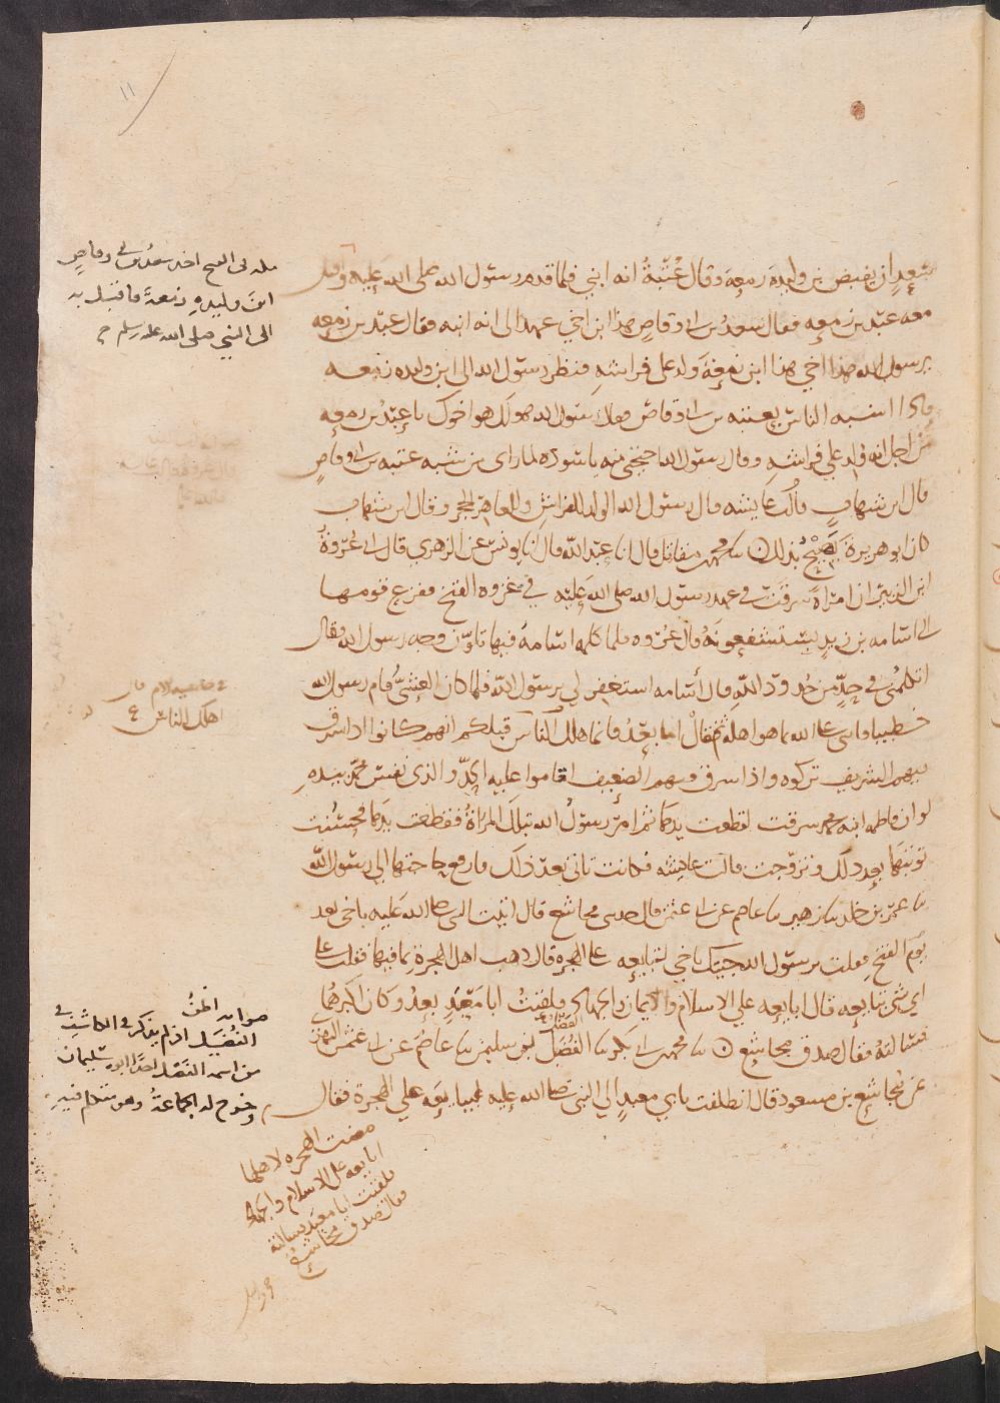 ١١
سعد ان يقبض بن وليدة زمعة وقال عُتْبَةُ انه ابني فلما قدم رسول الله صلى الله عليه وقبل
معه عبد بن زمعه فقال سعدُ بن ابي وقاصٍ هذا ابن اخي عهد الي انه ابنه فقال عبدُ بن زمعه
يرسول الله هذا اخي هذا ابن زمعةَ ولد على فراشهِ فنظر رسول الله الى ابن وليده زمعه
فاذا اشبه الناس بعتبه بن ابي وقاص فقال رسول الله هو لك هو اخوك يا عبدُ بن زمعه
من اجل انه وُلد علي فراشهِ وقال رسول الله احتجبي منه يا سوده لما راى من شبه عتبه بن ابي وقاصٍ
قال ابن شهابٍ قالت عايشه قال رسول الله الولد للفراشِ وللعاهرِ الحجر وقال ابن شهاب
كان ابو هريرة يَصِيْحُ بذلك ن محمد بن مقاتل قال انا عبد الله قال انا يونس عن الزهري قال اني عُروةُ
ابن الزبير ان امراةً سرقت في عهد رسول الله صلى الله عليه في غزوه الفتح ففزع قومها
الى اسامه بن زيدٍ يستشفعونَهُ قال عُروه فلما كلمه اسامةُ فيها تلوّن وجه رسول الله فقال
اتكلمُني في حدٍّ من حُدودِ اللهِ قال أسامه استغفر لي يرسول الله فلما كان العشيُّ قام رسول الله
خطيبا فاثنى على الله بما هو اهله ثم قال اما بعدُ فانما هلك الناسَ قبلكم انهم كانوا اذا سرق
فيهم الشريف تركوه واذا سرق فيهم الضعيف اقاموا عليه الحدَّ والذى نفس محمدٍ بيدهِ
لو ان فاطمه ابنه محمد سرقت لقطعت يدها ثم امَر رسولُ الله بتلك المراةُ فقطعت يدها فحسُنت
توبتها بعد ذلك وتزوّجت قالت عايشه فكانت تاتي بعد ذلك فارفع حاجتها الى رسول الله
عمرُ بن خلد زهير عاصم عن ابي عثمن قال حدثني مجاشع قال اتيت النبي صلى الله عليه باخي بعد
يوم الفتح فقلت يرسول الله جيتك باخي لتبايعه على الهجرة قال ذهب اهل الهجرة بما فيها فقلت على
اي شي تبايعه قال ابايعه علي الاسلام والايمان والجهاد فلقيتُ ابا مَعبَدٍ بعدُ وكان اكبرهما
فسالتهُ فقال صدق مجاشع ن محمد بن ابي بكر الفُضَيل بن سليمن عاصم عن ابي عثمن النهدي
عن مجاشع بن مسعود قال انطلقت بابي معبدٍ الي النبي صلى الله عليه ليبايعَه علي الهجرة فقال
مضت الهجره لاهلها
ابايعه على الاسلام والجهاد
فلقيت ابا معبد فسالته
فقال صدق مجاشع
مكه في الفتح اخذ سعدُ بن ابي وقاصٍ
ابنَ وليدهِ زمعة فاقبل به
الى النبي صلى الله عليه وسلم
قال
اهلك الناس
صوابه
الفُضَيل اذ لم يذكر في الكاشف
من اسمه الفضل احدا ابوه سليمان
وخرج له الجماعة وهو متكلم فيه